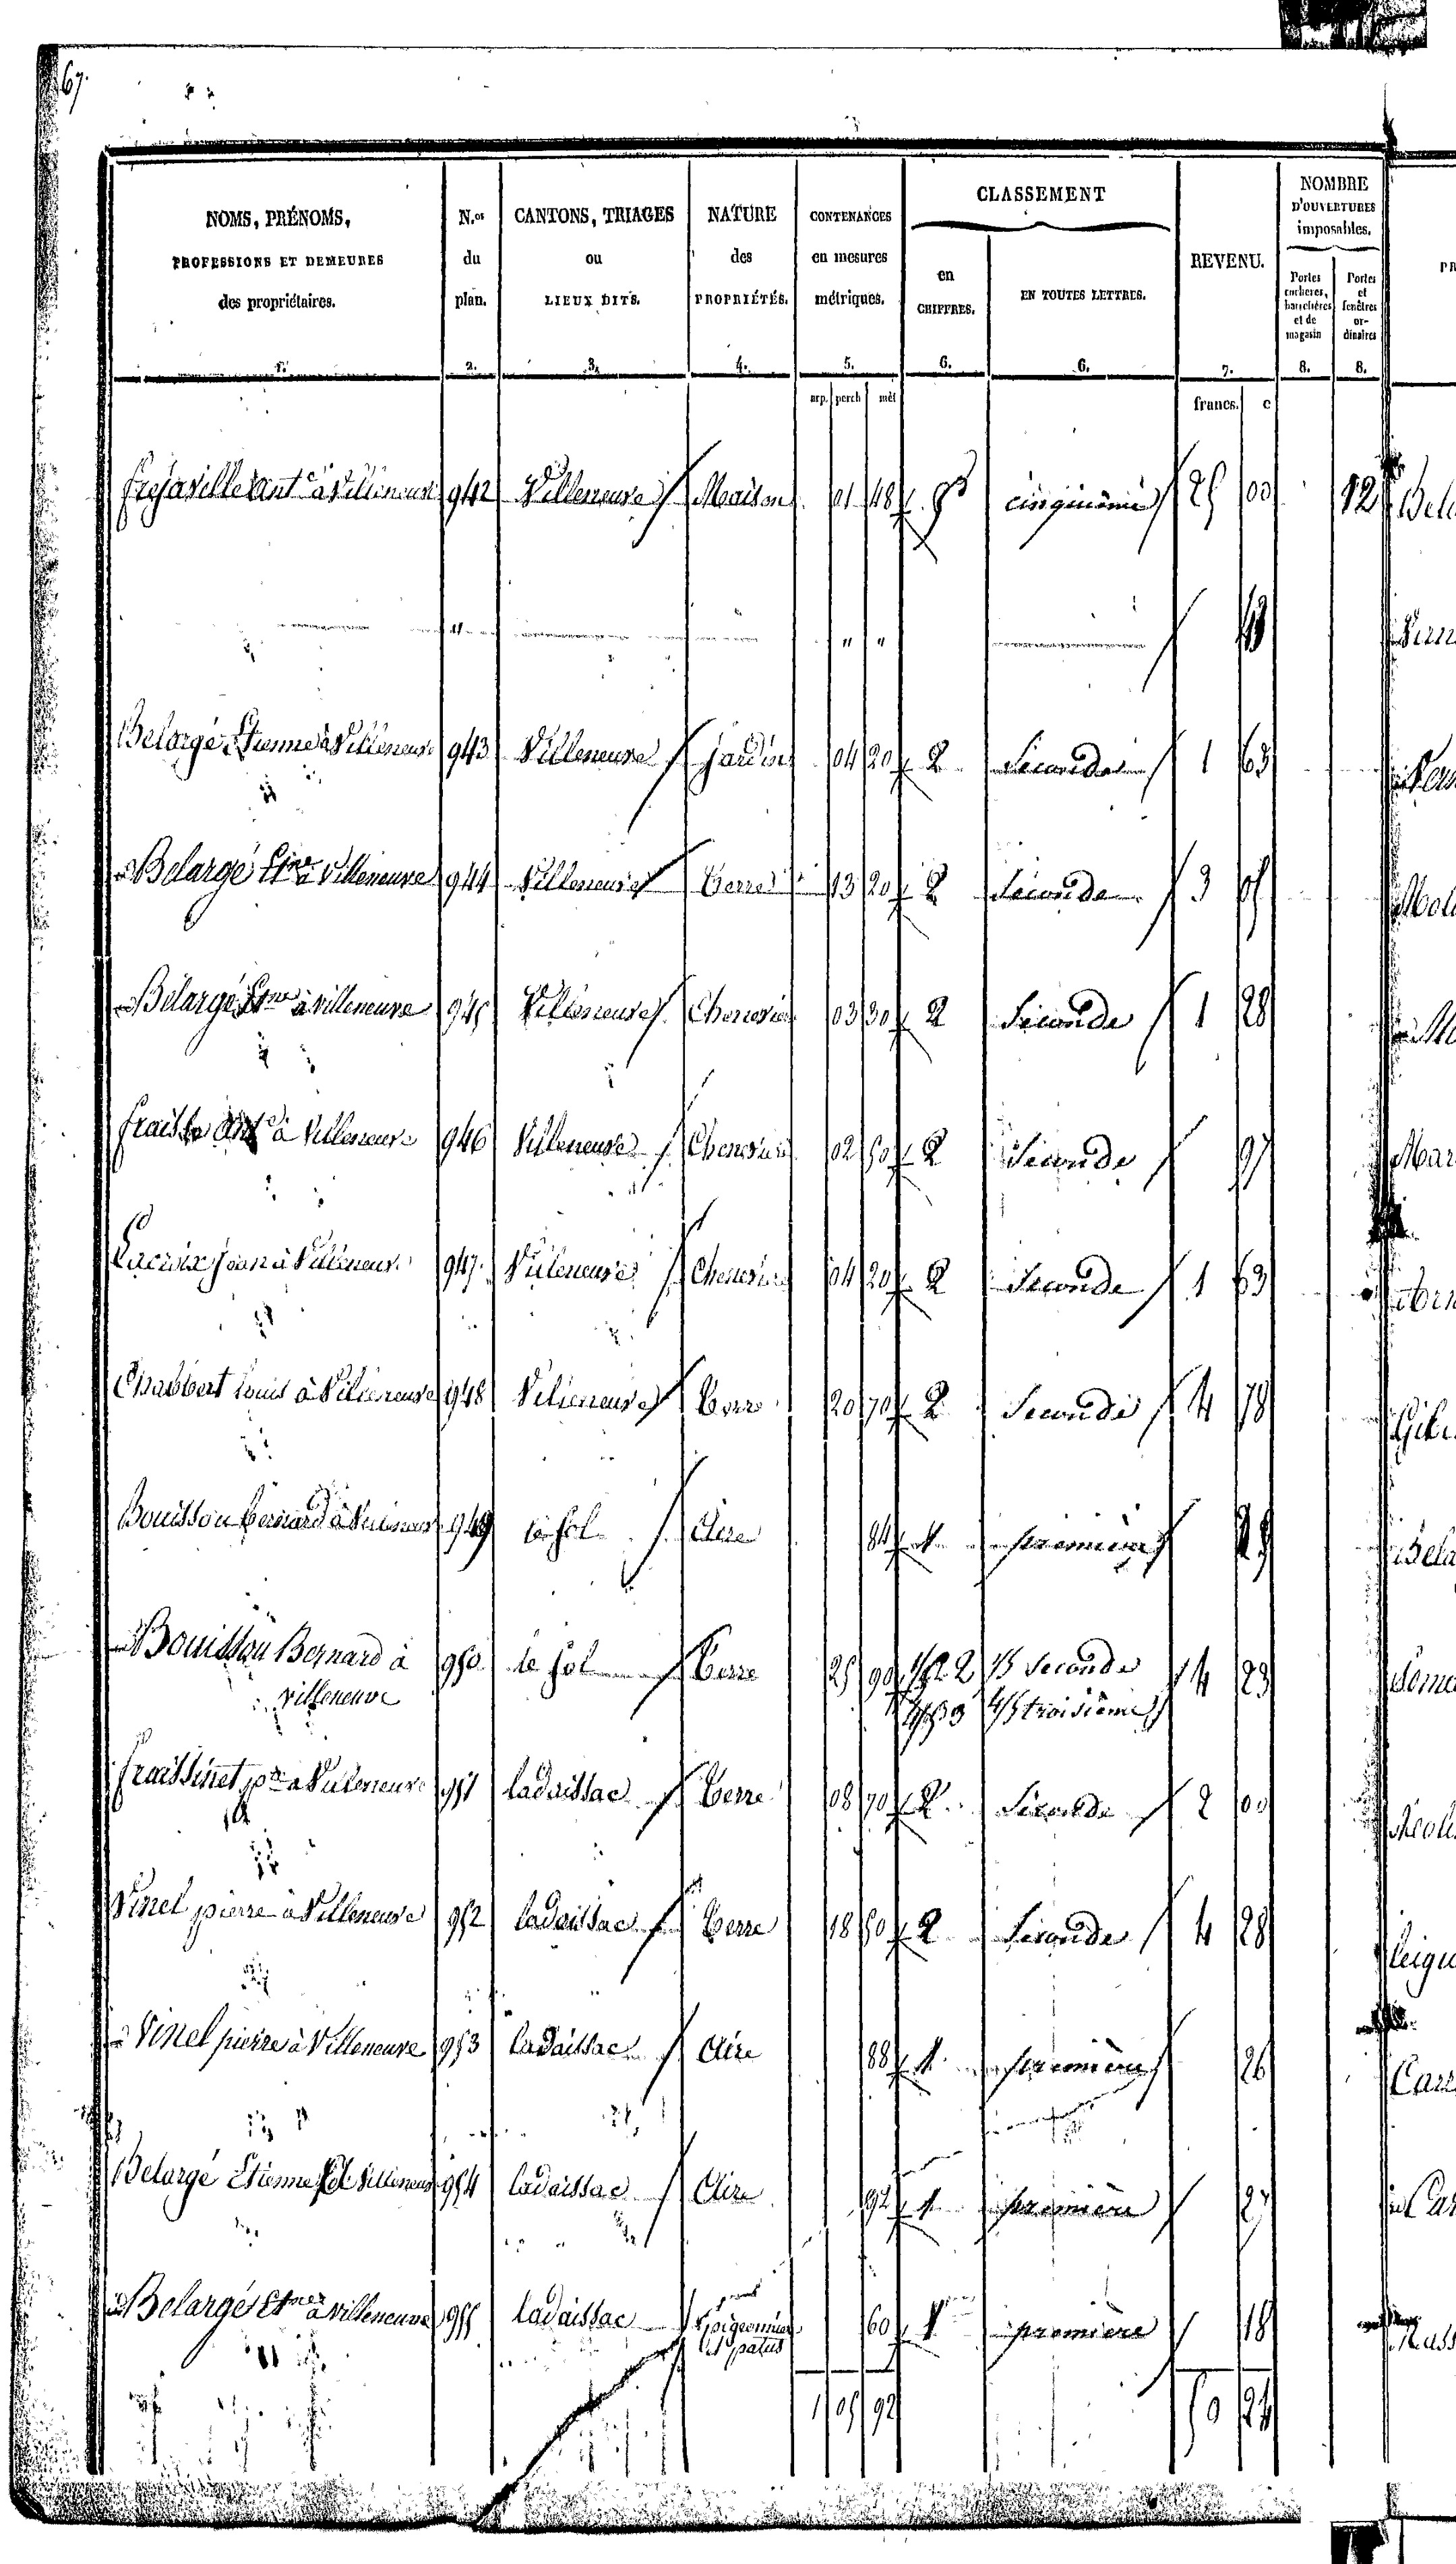 67.
NOMS, PRÉNOMS, PROFESSIONS ET DEMEURES des propriétaires. 1.
N.os du plan. 2.
CANTONS, TRIAGES ou LIEUX DITS. 3.
NATURE des PROPRIÉTÉS. 4.
CONTENANCES en mesures métriques. 5.
CLASSEMENT
en CHIFFRES. 6.
EN TOUTES LETTRES. 6.
REVENU. 7.
NOMBRE D'OUVERTURES imposables.
Portes cochères, batelières et de magasin 8.
Portes et fenêtres ordinaires 8.
arp. perch mèt francs. c
frejaville Ant.e à Villeneuve 942 Villeneuve Maison 01 48 5 cinquième 25 00 12
" " "
Belargé Etienne à Villeneuve 943 Villeneuve Jardin 04 20 2 Seconde 1 63
Belargé Etne à Villeneuve 944 Villeneuve Terre 13 20 2 Seconde 3 05
Belargé Etne à Villeneuve 945 Villeneuve Chenevière 03 30 2 Seconde 1 28
fraisse Ant.e à Villeneuve 946 Villeneuve Chenevière 02 50 2 Seconde 97
Lacroix Jean à Villeneuve 947 Villeneuve Chenevière 04 20 2 Seconde 1 63
Chabbert Louis à Villeneuve 948 Villeneuve Terre 20 70 2 Seconde 4 78
Bouissou Bernard à Villeneuve 949 le sol Aire 84 1 première 25
Bouissou Bernard à 950 le sol Terre 25 90 1/5 2 1/5 Seconde 4 23
villeneuve 4/5 3 4/5 troisième
fraissinet pre à Villeneuve 951 ladaissac Terre 08 70 2 Seconde 2 00
Vinel pierre à Villeneuve 952 ladaissac Terre 18 50 2 Seconde 4 28
Vinel pierre à Villeneuve 953 ladaissac Aire 88 1 première 26
Belargé Etienne de Villeneuve 954 ladaissac Aire 92 1 première 27
Belargé Etne à villeneuve 955 ladaissac pigeonnier 60 1 première 18
et patus
1 05 92 50 24